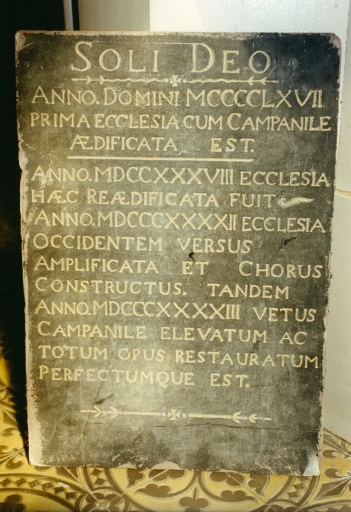 SOLI DEO
ANNO. DOMINI MCCCCCLXVII
PRIMA ECCLESIA CUM CAMPANILE
ÆDIFICATA EST.
ANNO. MDCCXXXVIII ECCLESIA
HÆC REÆDIFICATA FUIT
ANNO. MDCCCXXXXII ECCLESIA
OCCIDENTEM VERSUS
AMPLIFICATA ET CHORUS
CONSTRUCTUS. TANDEM
ANNO. MDCCCXXXXIII VETUS
CAMPANILE ELEVATUM AC
TOTUM OPUS RESTAURATUM
PERFECTUMQUE EST.